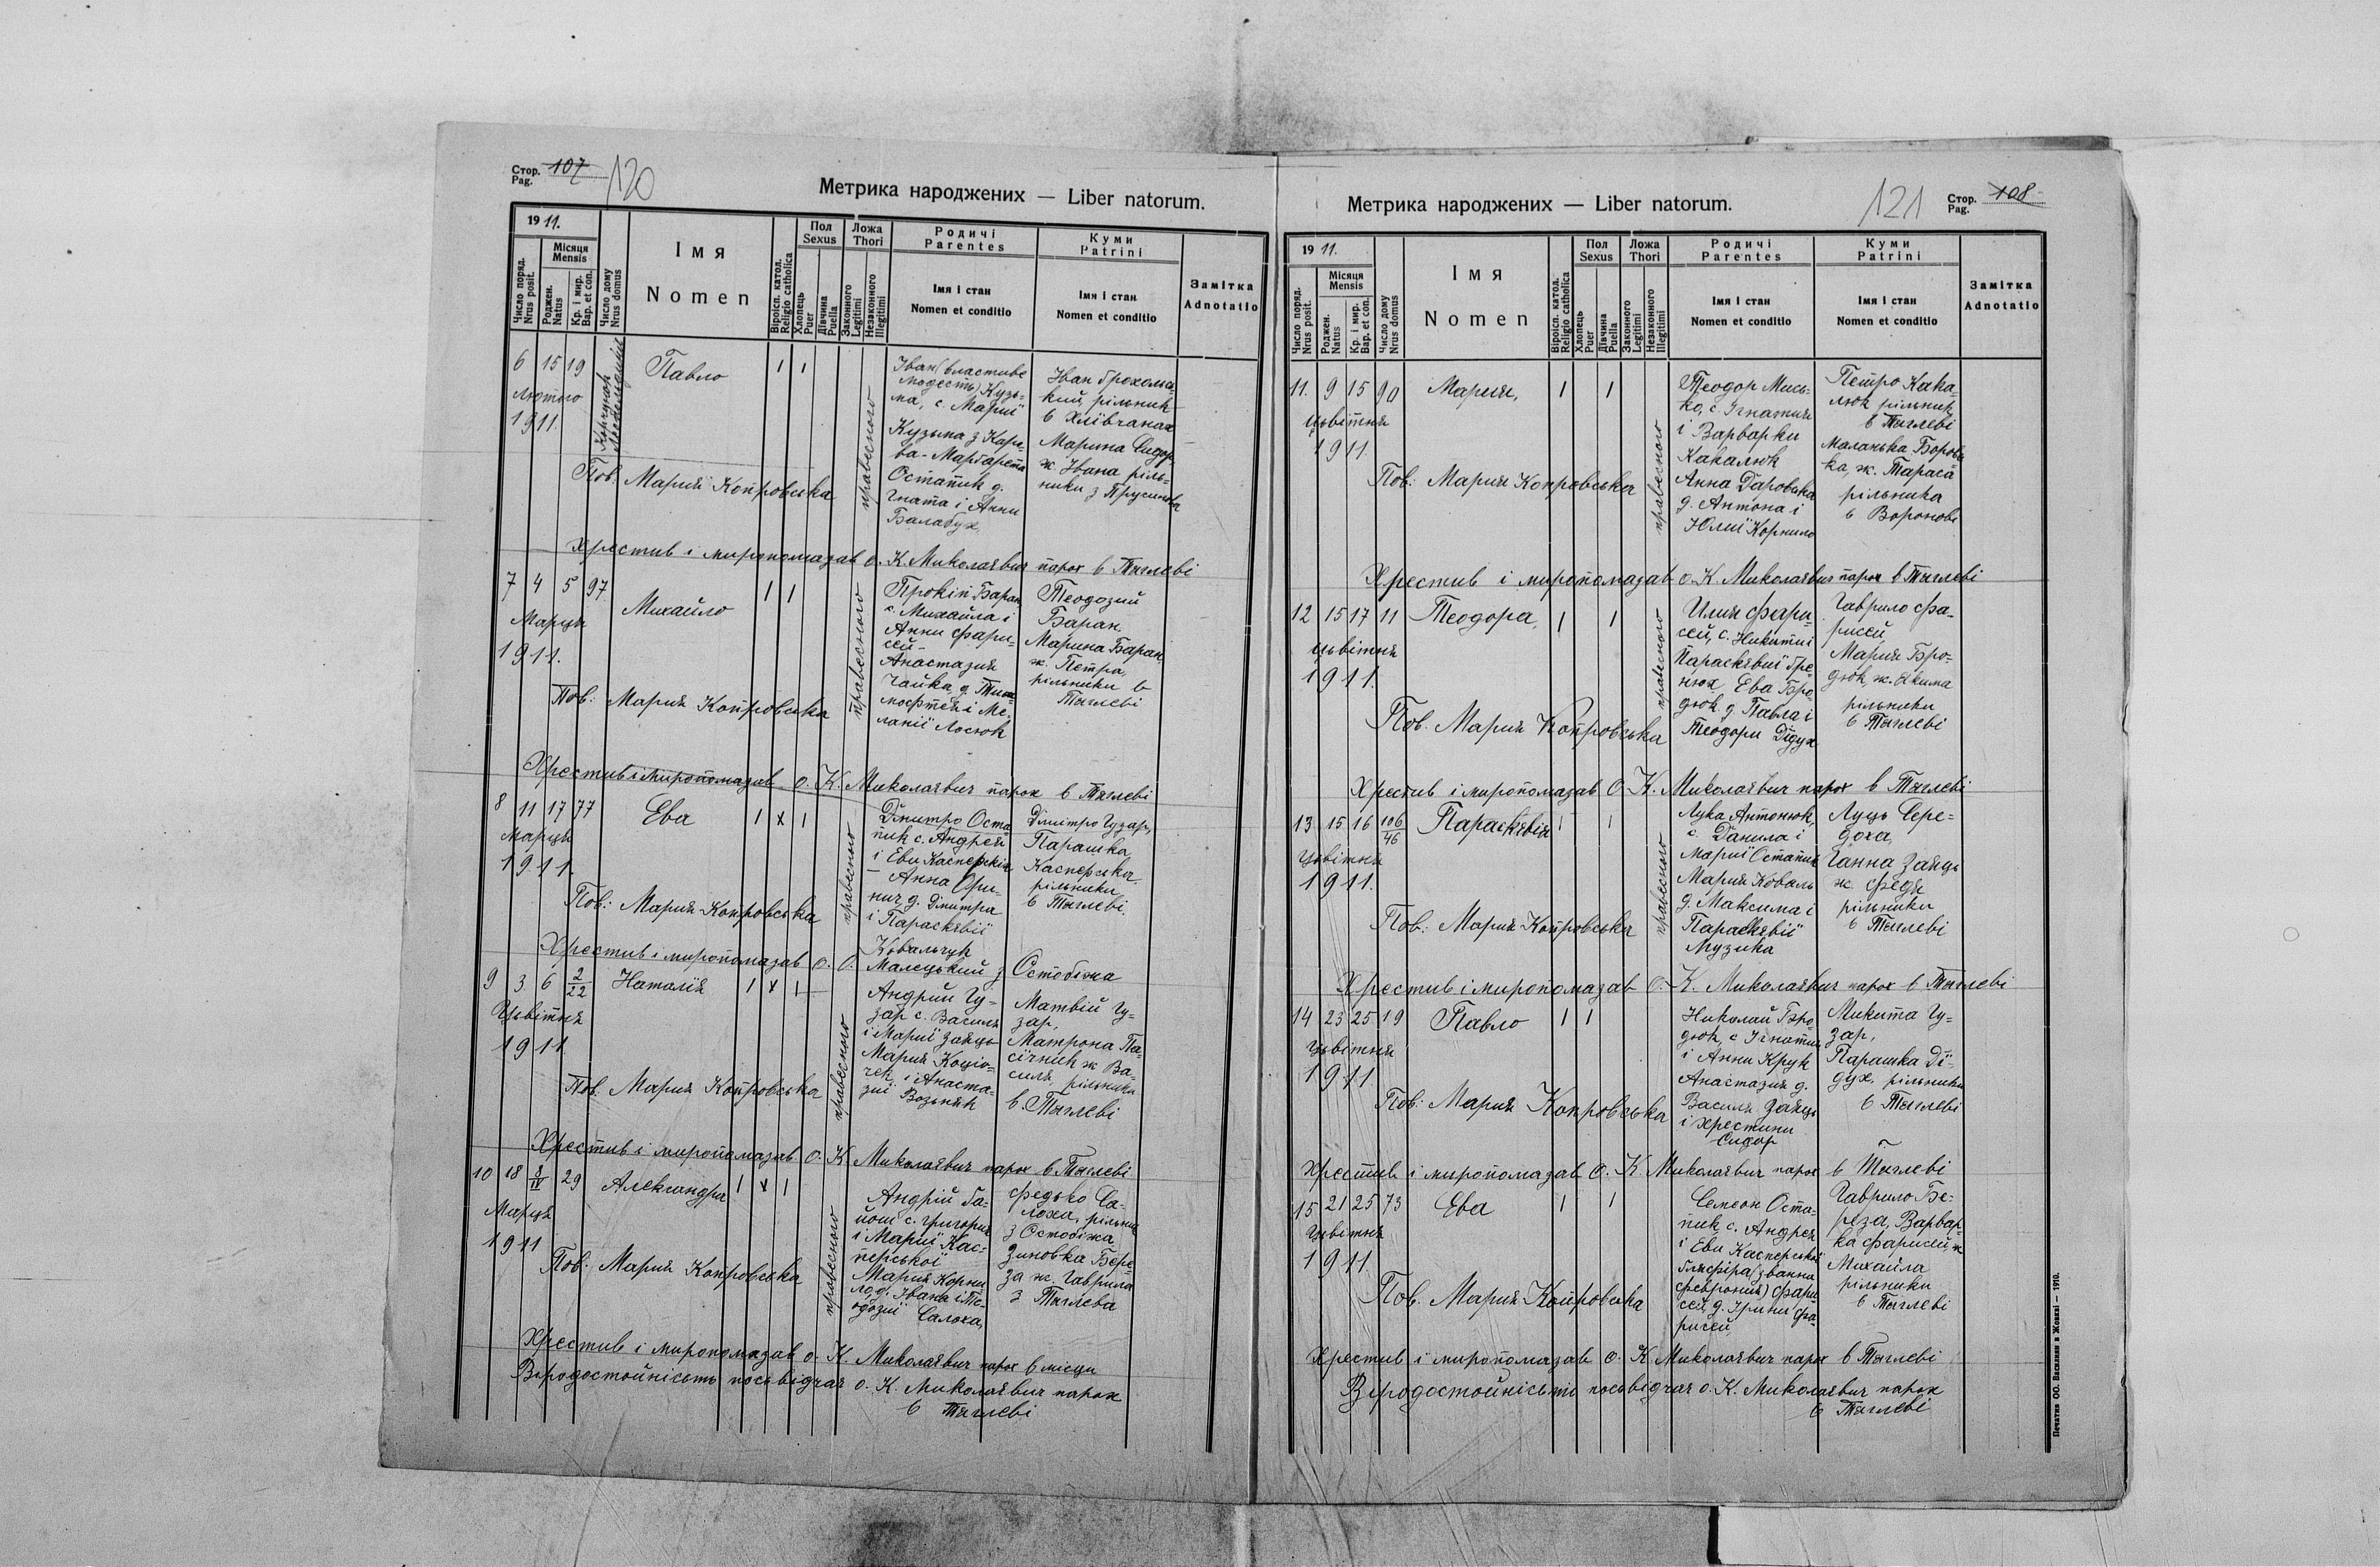 Стор. 107
Pag.
120
Метрика народжених — Liber natorum.
1911.
Число поряд.
Nrus posit.
Місяця
Mensis
Роджен.
Natus
Кр. і мир.
Bap. et con.
Число дому
Nrus domus
Імя
Nomen
Віроісп. катол.
Religio catholica
Пол
Sexus
Хлопець
Puer
Дівчина
Puella
Ложа
Thori
Законного
Legitimi
Незаконного
Illegitimi
Родичі
Parentes
Імя і стан
Nomen et conditio
Куми
Patrini
Імя і стан
Nomen et conditio
Замітка
Adnotatio
6 15 19 Павло 1 1
Лютого
1911.
правесного
Іван (властиве
Модесть) Кузь-
ма, с. Марії
Кузьма з Кара-
ва - Марґарета
Остапик д.
Гната і Анни
Балабух
Іван Брохома
кий, рільник
в Хлівчанах
Марина Сидор
ж. Івана ріль-
ники з Прусинова
Пов. Мария Копровська
Хрестив і миропомазав о. К. Миколаєвич парох в Тяглеві
7 4 5 97 Михайло 1 1
Марця
1911.
правесного
Прокіп Баран,
с. Михайла і
Анни Фари-
сей -
Анастазия
Чайка, д. Тим
мофтея і Ме-
ланії Лосюк
Теодозий
Баран
Марина Баран
ж. Петра,
рільники в
Тяглеві
Пов: Мария Копровська
Хрестив і миропомазав о. К. Миколаєвич парох в Тяглеві
8 11 17 77 Ева 1 x 1
Марця
1911.
правесного
Дмитро Оста
пик с. Андрея
і Еви Касперскіи
- Анна Ори-
нич д. Дмитра
і Параскевії
Ковальчук
Дмитро Гузар,
Парашка
Касперська
рільники
в Тяглеві.
Пов: Мария Копровська
Хрестив і миропомазав о. О. Малецький з Остобіжа
9 3 6 2/22 Наталія 1 x 1
Цьвітня
1911
правесного
Андрий Гу-
зар с. Василя
і Марії Заяць
Мария Коцю-
чек, і Анаста-
зиї Возьняк
Матвій Гу-
зар,
Матрона Па-
січник ж Ва-
силя, рільники
в Тяглеві
Пов. Мария Копровська
Хрестив і миропомазав о. К. Миколаєвич парох в Тяглеві
10 18 8/IV 29 Александра 1 x 1
Марця
1911
правесного
Андрій Га-
йош с. Григория
і Марії Кас-
перської
Мария Корни
ло, д. Івана і Те-
одозиї Салоха,
Федько Са-
лоха, рільник
з Остобіжа
Зиновка Бере-
за ж. Гаврила
з Тяглева
Пов: Мария Копровська
Хрестив і миропомазав о. К. Миколаєвич парох в місци
Віродостойність посьвідчає о. К. Миколаєвич парох
в Тяглеві
Метрика народжених — Liber natorum.
121
Стор. 108
Pag.
1911.
Число поряд.
Nrus posit.
Місяця
Mensis
Роджен.
Natus
Кр. і мир.
Bap. et con.
Число дому
Nrus domus
Імя
Nomen
Віроісп. катол.
Religio catholica
Пол
Sexus
Хлопець
Puer
Дівчина
Puella
Ложа
Thori
Законного
Legitimi
Незаконного
Illegitimi
Родичі
Parentes
Імя і стан
Nomen et conditio
Куми
Patrini
Імя і стан
Nomen et conditio
Замітка
Adnotatio
11. 9 15 90 Мария, 1 1
Цьвітня
1911.
правесного
Теодор Мись-
ко, с. Ігнатия
і Варварки
Какалюк
Анна Даровська
д. Антона і
Юлиї Корнило
Петро Кака-
люк рільник
в Тяглеві
Маланька Боров
ка, ж. Тараса
рільника
в Воронові
Пов: Мария Копровська
Хрестив і миропомазав о. К. Миколаєвич парох в Тяглеві
12 15 17 11 Теодора, 1 1
Цьвітня
1911.
правесного
Илия Фари-
сей, с. Никити і
Параскевиї Гре-
нюх, Ева Бро-
дюк д. Павла і
Теодори Дідух
Гаврило Фа-
рисей,
Мария Бро-
дюк, ж. Якима
рільники
в Тяглеві
Пов. Мария Копровська
Хрестив і миропомазав О. К. Миколаєвич парох в Тяглеві
13 15 16 106/46 Параскевія 1 1
Цьвітня
1911.
правесного
Лука Антонюк,
с. Данила і
Марії Остапик
Мария Коваль
д. Максима і
Параскевії
Музика
Луць Сере-
доха,
Ганна Заяць
ж. Федя
рільники
в Тяглеві
Пов: Мария Копровська
Хрестив і миропомазав о. К. Миколаєвич парох в Тяглеві
14 23 25 19 Павло 1 1
Цьвітня
1911
Николай Бро-
дюк, с Ігнатия
і Анни Крук
Анастазия д.
Василя Заяць
і Христини
Сидор
Микита Гу-
зар,
Парашка Ді-
дух, рільники
в Тяглеві
Пов: Мария Копровська
Хрестив і миропомазав О. К. Миколаєвич парох в Тяглеві
15 21 25 73 Ева 1 1
Цьвітня
1911.
Семеон Оста-
пик с. Андрея
і Еви Касперської
Гликфіра (звана
Февронія) Фари
сей, д. Ірини Фа-
рисей
Гаврило Бе-
реза, Варвар-
ка Фарисей, ж
Михайла
рільники
в Тяглеві
Пов. Мария Копровська
Хрестив і миропомазав О. К. Миколаєвич парох в Тяглеві
Віродостойність посьвідчає о. К. Миколаєвич парох
в Тяглеві
Печатня ОО. Василиян в Жовкві — 1910.